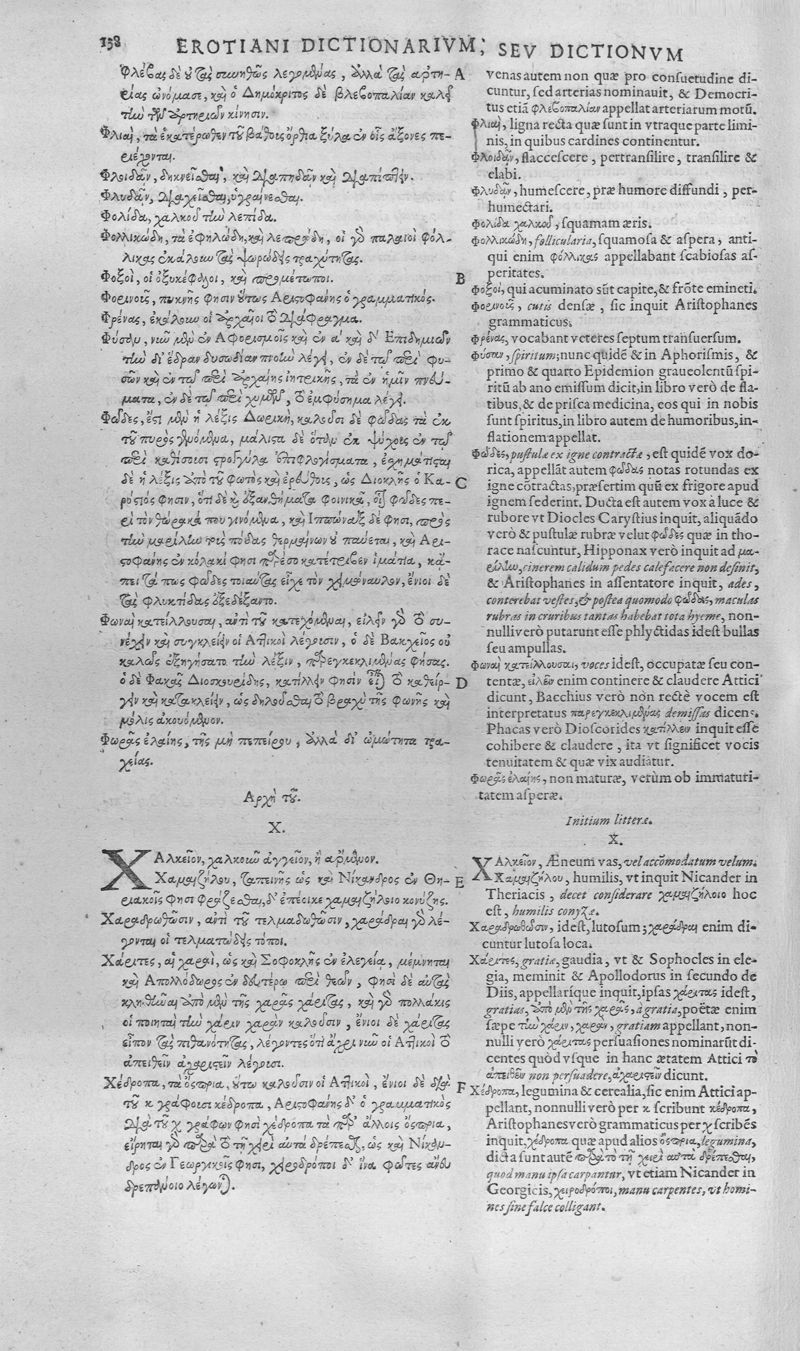 138
EROTIANI DICTIONARIVM, SEV DICTIONVM
Φλέβας δὲ οὐ τὰς συνήθως λεγομένας, ἀλλὰ τὰς ἀρτη-
ρίας ὠνόμασε, καὶ ὁ Δημόκριτος δὲ φλεβοπαλίαν καλεῖ
τὴν τῶν ἀρτηριῶν κίνησιν.
Φλιαὶ, τὰ ἑκατέρωθεν τοῦ βάθους ὄρθια ξύλα ἐν οἷς ἄξονες πε-
ριέχονται.
Φλοιδᾶν,
Φλυδᾶν,
Φολίδα, χαλκοῦ τὴν λεπίδα.
Φολλικώδη, τὰ ἐφηλώδη, καὶ λεπρώδη, οἱ γὸ παλαιοὶ φόλ-
λικας ἐκάλουν τὰς ψωρώδεις τραχύτητας.
Φοξοὶ, οἱ ὀξυκέφαλοι, καὶ προμέτωποι.
Φορινοῖς, πυκνῆς φησιν οὕτως Ἀριστοφάνης ὁ γραμματικός.
Φρένας, ἐκάλουν οἱ ἀρχαῖοι τὸ διάφραγμα.
Φῦσαν, νῦν μὲν ἐν Ἀφορισμοῖς καὶ ἐν α καὶ δ' Ἐπιδημιῶν
τὴν δι' ἕδραν δυσωδίαν πνοὴν λέγει, ἐν δὲ τῷ περὶ φυ-
σῶν καὶ ἐν τῷ περὶ ἀρχαίης ἰητρικῆς, τὰ ἐν ἡμῖν πνεύ-
ματα, ἐν δὲ τῷ περὶ χυμῶν, τὸ ἐμφύσημα λέγει.
Φῶδες, ἔστι μὲν ἡ λέξις Δωρικὴ, καλοῦσι δὲ φῶδας τὰ ἐκ
τοῦ πυρὸς γενόμενα, μάλιστα δὲ ὅταν ἐκ ψύχους ἐν τῷ
πυρὶ καθίσωσι στρογγύλα ἐπιφλογίσματα, ἐσχημάτισται
δὲ ἡ λέξις ἀπὸ τοῦ φωτὸς καὶ ἐρεύθους, ὡς Διοκλῆς ὁ Κα-
ρύστιός φησιν, ὅτι δὲ καὶ ἐξανθήματα φοινικᾶ, οἷον φῶδες πε-
ρὶ τὸν θώρακά που γινόμενα, καὶ Ἱππώναξ δέ φησι, πρὸς
τὴν μαρίλην τοὺς πόδας θερμαίνων οὐ παύεται, καὶ Ἀρι-
στοφάνης ἐν κόλακί φησι πάρεσο κατέτριβεν ἱμάτια, κᾄ-
πειτά πως φῶδας τοιαύτας εἶχε τὸν χειμῶνα ὅλον, ἔνιοι δὲ
τὰς φλυκτίδας ἐξεδέξαντο.
Φωναὶ κατείλλουσαι, αὐτὶ τοῦ κατεχόμεναι, εἴλειν γὸ τὸ συ-
νέχειν καὶ συγκλείειν οἱ Ἀττικοὶ λέγουσιν, ὁ δὲ Βακχεῖος οὐ
καλῶς ἐξηγήσατο τὴν λέξιν, παρεγκεκλιμένας φήσας.
ὁ δὲ Φακᾶς Διοσκουρίδης, κατίλλειν φησὶν εἶναι τὸ καθείρ-
γειν καὶ κατακλείειν, ὡς δηλοῦσθαι τὸ βραχὺ τῆς φωνῆς καὶ
μόλις ἀκουόμενον.
Φωρᾶς ἐλαίης, τῆς μὴ πεπείρου, ἀλλὰ δι' ὠμότητα τρα-
χείας.
Ἀρχὴ τοῦ.
Χ.
ΧΑλκεῖον, χαλκοῦν ἀγγεῖον, ἢ ἄρμενον.
Χαμαιζήλου, ταπεινῆς ὡς καὶ Νίκανδρος ἐν Θη-
ριακοῖς φησι φράζεσθαι, δ' ἐπέοικε χαμαιζήλοιο κονύζης.
Χαραδρωθῶσιν, αὐτὶ τοῦ τελμαδωθῶσιν, χαράδραι γὸ λέ-
γονται οἱ τελματώδεις τόποι.
Χάριτες, αἱ χαραὶ, ὡς καὶ Σοφοκλῆς ἐν ἐλεγεία, μέμνηται
καὶ Ἀπολλόδωρος ἐν δευτέρω περὶ θεῶν, φησὶ δὲ αὐτὰς
κληθῆναι ἀπὸ μὲν τῆς χαρᾶς χάριτας, καὶ γὸ πολλάκις
οἱ ποιηταὶ τὴν χάριν χαρὰν καλοῦσιν, ἔνιοι δὲ χάριτας
εἶπον τὰς πιθανότητας, λέγοντες ὅτι ἄχρι νῦν οἱ Ἀττικοὶ τὸ
ἀπειθεῖν ἀχαριστεῖν λέγουσι.
Χέδροπα, τὰ ὄσπρια, οὕτω καλοῦσιν οἱ Ἀττικοὶ, ἔνιοι δὲ διὰ
τοῦ κ γράφουσι κέδροπα, Ἀριστοφάνης δ' ὁ γραμματικὸς
διὰ τοῦ χ γράφων φησὶ χέδροπα τὰ παρ' ἄλλοις ὄσπρια,
εἴρηται γὸ παρὰ τὸ τῇ χειρὶ αὐτὰ δρέπεσθαι, ὡς καὶ Νίκαν-
δρος ἐν Γεωργικοῖς φησι, χειροδρόποι δ' ἵνα φῶτες ἄνευ
δρεπάνοιο λέγονται.
A
B
C
D
E
F
venas autem non quæ pro consuetudine di-
cuntur, sed arterias nominauit, & Democri-
tus etiã φλεβοπαλίαν appellat arteriarum motũ.
Φλιαὶ, ligna recta quæ sunt in vtraque parte limi-
nis, in quibus cardines continentur.
Φλοιδᾶν, flaccescere, pertransilire, transilire &
elabi.
Φλυδᾶν, humescere, præ humore diffundi, per-
humectari.
Φολίδα χαλκοῦ, squamam æris.
Φολλικώδη, follicularia, squamosa & aspera, anti-
qui enim φόλλικας appellabant scabiosas as-
peritates.
Φοξοὶ, qui acuminato sũt capite, & frõte eminẽti.
Φορινοῖς, cutis densæ, sic inquit Aristophanes
grammaticus.
Φρένας, vocabant veteres septum transuersum.
Φῦσαν, spiritum; nunc quidẽ & in Aphorismis, &
primo & quarto Epidemion graueolentũ spi-
ritũ ab ano emissum dicit, in libro verò de fla-
tibus, & de prisca medicina, eos qui in nobis
sunt spiritus, in libro autem de humoribus, in-
flationem appellat.
Φῶδες, pustulæ ex igne contractæ, est quidẽ vox do-
rica, appellãt autem φῶδας notas rotundas ex
igne cõtractas, præsertim quũ ex frigore apud
ignem sederint. Ducta est autem vox à luce &
rubore vt Diocles Carystius inquit, aliquãdo
verò & pustulæ rubræ velut φῶδες quæ in tho-
race nascuntur, Hipponax verò inquit ad μα-
ρίλην, cinerem calidum pedes calefacere non definit,
& Aristophanes in assentatore inquit, ades,
conterebat vestes, & postea quomodo φῶδας, maculas
rubras in cruribus tantas habebat tota hyeme, non-
nulli verò putarunt esse phlyctidas idest bullas
seu ampullas.
Φωναὶ κατείλλουσαι, voces idest, occupatæ seu con-
tentæ, εἰλεῖν enim continere & claudere Attici
dicunt, Bacchius verò non rectè vocem est
interpretatus παρεγκεκλιμένας demissas dicens.
Phacas verò Dioscorides κατίλλειν inquit esse
cohibere & claudere, ita vt significet vocis
tenuitatem & quæ vix audiatur.
Φωρᾶς ἐλαίης, non maturæ, verùm ob immaturi-
tatem asperæ.
Initium litteræ.
X.
ΧΑλκεῖον, Æneum vas, vel accõmodatum velum.
Χαμαιζήλου, humilis, vt inquit Nicander in
Theriacis, decet considerare χαμαιζήλοιο hoc
est, humilis conyzæ.
Χαραδρωθῶσιν, idest, lutosum; χαράδραι enim di-
cuntur lutosa loca.
Χάριτες, gratiæ, gaudia, vt & Sophocles in ele-
gia, meminit & Apollodorus in secundo de
Diis, appellarique inquit, ipsas χάριτας idest,
gratias, ἀπὸ μὲν τῆς χαρᾶς, à gratia, poëtæ enim
sæpe τὴν χάριν, χαρὰν, gratiam appellant, non-
nulli verò χάριτας persuasiones nominarũt di-
centes quòd vsque in hanc ætatem Attici τὸ
ἀπειθεῖν non persuadere, ἀχαριστεῖν dicunt.
Χέδροπα, legumina & cerealia, sic enim Attici ap-
pellant, nonnulli verò per κ scribunt κέδροπα,
Aristophanes verò grammaticus per χ scribẽs
inquit, χέδροπα quæ apud alios ὄσπρια, legumina,
dicta sunt autẽ παρὰ τὸ τῇ χειρὶ αὐτὰ δρέπεσθαι,
quod manu ipsa carpantur, vt etiam Nicander in
Georgicis, χειροδρόποι, manu carpentes, vt homi-
nes sine falce colligant.